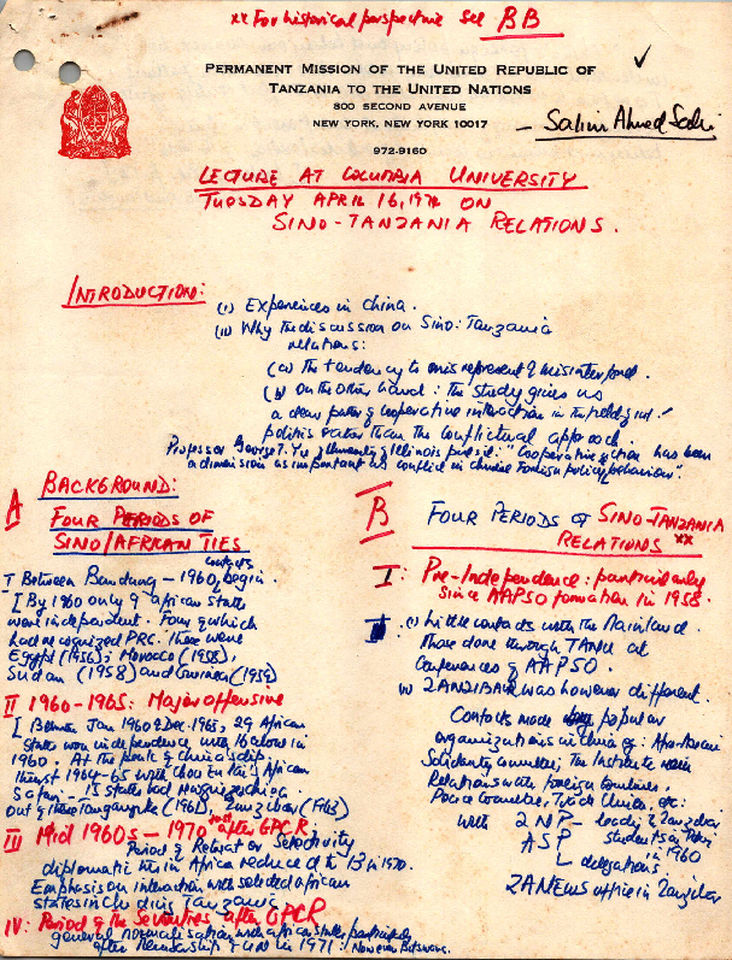 xx For historical perspective see BB
PERMANENT MISSION OF THE UNITED REPUBLIC OF
TANZANIA TO THE UNITED NATIONS
800 SECOND AVENUE
NEW YORK, NEW YORK 10017
972-9160
- Salim Ahmed Salim
LECTURE AT COLUMBIA UNIVERSITY
TUESDAY APRIL 16, 1974 ON
SINO-TANZANIA RELATIONS.
INTRODUCTION:
(i) Experiences in China.
(ii) Why the discussion on Sino: Tanzania
relations:
(a) The tendency to misrepresent & misinterpret.
(b) On the other hand: The study gives us
a clear pattern of cooperative interaction in the field of int.
politics rather than the conflictual approach.
Professor George T. Yu of University of Illinois puts it: "Cooperative action has been
a dimension as important as conflict in Chinese Foreign policy behaviour".
A BACKGROUND:
FOUR PERIODS OF
SINO/AFRICAN TIES
I Between Bandung - 1960 contacts begin.
[By 1960 only 9 African states
were independent. Four of which
had recognized PRC. These were
Egypt (1956); Morocco (1958),
Sudan (1958) and Guinea (1959)
II 1960-1965: Major offensive
[Between Jan 1960 & Dec. 1965, 29 African
states won independence with 16 alone in
1960. At the peak of China's dip.
thrust 1964-65 with Chou En Lai's African
Safari - 15 states had recognized China
Out of these Tanganyika (1961), Zanzibar (1963)
III Mid 1960s - 1970 after GPCR.
Period of Retreat or Selectivity
diplomatic ties in Africa reduced to 13 in 1970.
Emphasis on interaction with selected African
states including Tanzania
IV: Period of the Seventies after GPCR
general normalisation with African states particularly
after membership of UN in 1971: However Botswana.
B FOUR PERIODS OF SINO-TANZANIA
RELATIONS xx
I: Pre-Independence: particularly
since AAPSO formation in 1958.
(i) Little contacts with the Mainland.
Those done through TANU at
Conferences of AAPSO.
(ii) ZANZIBAR was however different.
Contacts made popular
organizations in China eg: Afro-Asian
Solidarity Committee, The Institute
Relations with foreign countries,
Peace Committee, Trade Union, etc:
with ZNP - leading Zanzibar
ASP students in Peking
in 1960
delegations
ZANEWS office in Zanzibar